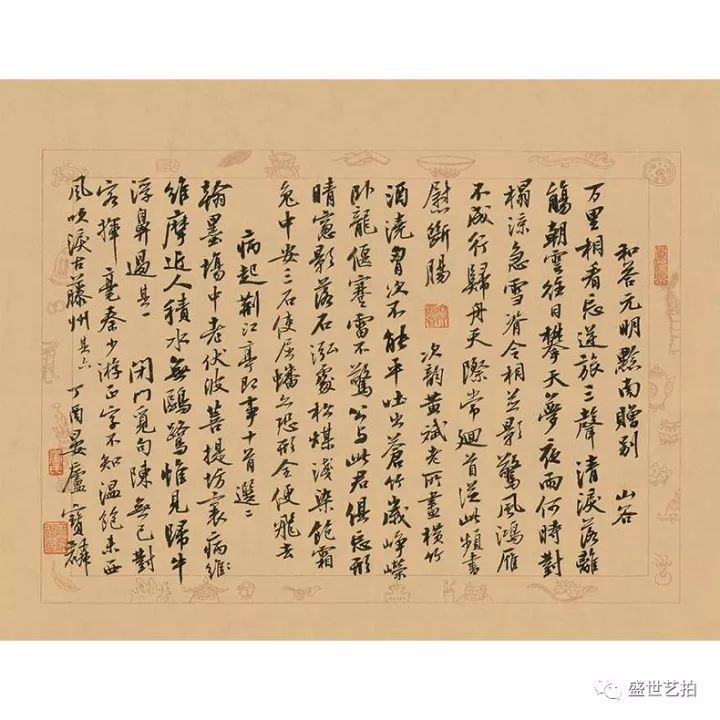 和答元明黔南贈別 山谷
万里相看忘逆旅三聲清淚落離
觴朝雲往日攀天夢夜雨何時對
榻涼急雪脊令相並影驚風鴻雁
不成行歸舟天際常迴首從此頻書
慰斷腸 次韻黃斌老所畫橫竹
酒澆胷次不能平吐出蒼竹歲崢嶸
卧龍偃蹇雷不驚公与此君俱忘形
晴窻影落石泓處松煤淺染飽霜
兔中安三石使屈蟠亦恐形全便飛去
病起荆江亭即事十首選二
翰墨場中老伏波菩提坊裏病維
維摩近人積水無鷗鷺惟見歸牛
浮鼻過 其一 閉門覓句陳無己對
客揮毫秦少游正字不知温飽未西
風吹淚古藤州 其六 丁酉晏廬寶
盛世艺拍